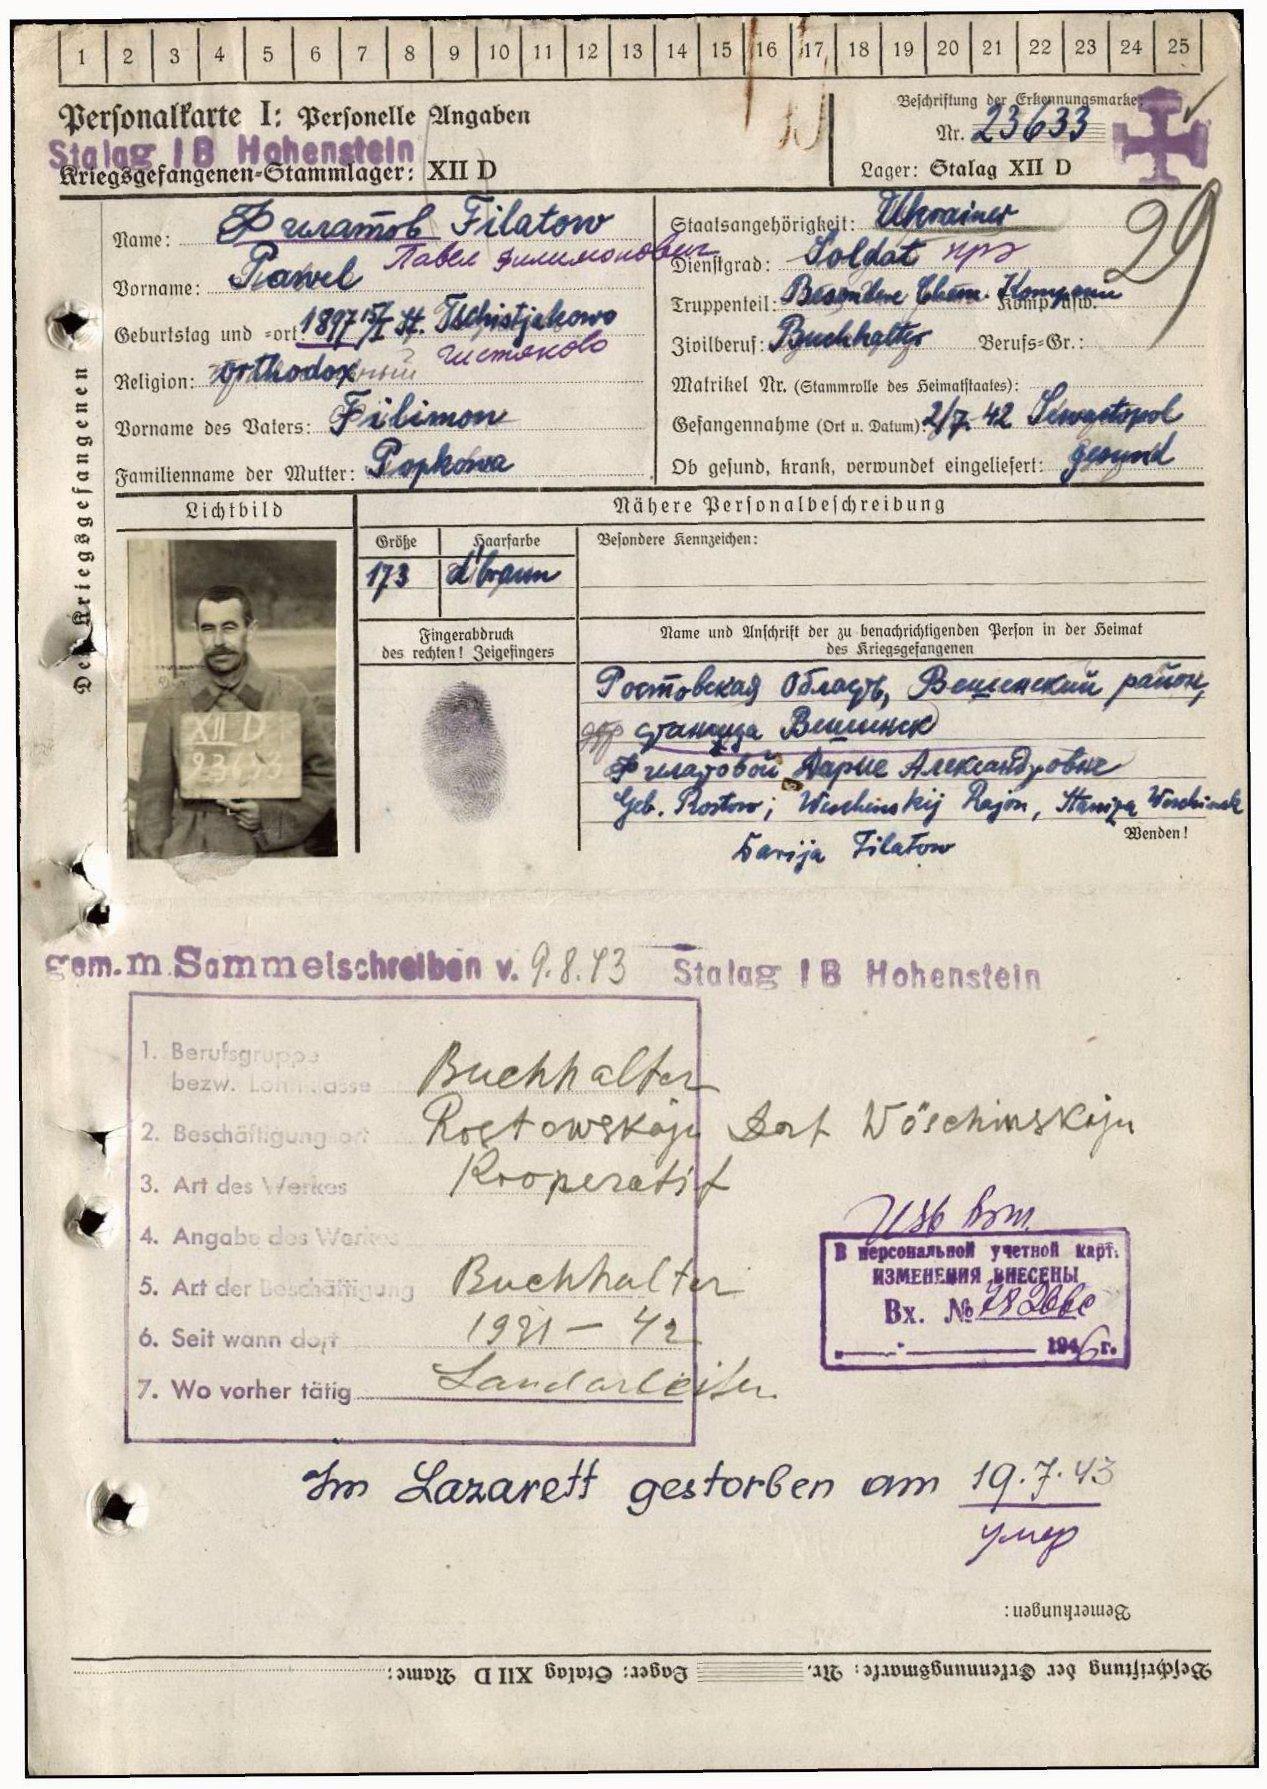 1 2 3 4 5 6 7 8 9 10 11 12 13 14 15 16 17 18 19 20 21 22 23 24 25
Personalkarte I: Personelle Angaben
Stalag IB Hohenstein
Kriegsgefangenen-Stammlager: XII D
Beschriftung der Erkennungsmarke
Nr. 23633
Lager: Stalag XII D
29
Des Kriegsgefangenen
Name: Филатов Filatow
Павел Филимонович
Vorname: Pawel
Geburtstag und -ort: 1897 15/I St. Tschistjakowo
Чистяково
Religion: orthodox
Vorname des Vaters: Filimon
Familienname der Mutter: Popkowa
Staatsangehörigkeit: Ukrainer
Dienstgrad: Soldat
Truppenteil: Besondere Chem. Kompanie Komp. usw.
Zivilberuf: Buchhalter Berufs-Gr.:
Matrikel Nr. (Stammrolle des Heimatstaates):
Gefangennahme (Ort u. Datum): 2/7. 42 Sewastopol
Ob gesund, krank, verwundet eingeliefert: gesund
Lichtbild
Nähere Personalbeschreibung
Größe Haarfarbe Besondere Kennzeichen:
173 d'braun
XII D
23633
Fingerabdruck
des rechten! Zeigefingers
Name und Anschrift der zu benachrichtigenden Person in der Heimat
des Kriegsgefangenen
Ростовская Область, Вешенский район,
станица Вешинск
Филатовой Дарье Александровне
Geb. Rostow; Weschinskij Rajon, Staniza Weschinsk
Wenden!
Darija Filatow
gem. m. Sammelschreiben v. 9.8.43 Stalag IB Hohenstein
1. Berufsgruppe
bezw. Lohnklasse Buchhalter
2. Beschäftigungsort Rostowskaju Dorf Wöschinskaju
3. Art des Werkes Kooperatif
4. Angabe des Werkes
5. Art der Beschäftigung Buchhalter
6. Seit wann dort 1931 – 42
7. Wo vorher tätig Landarbeiter
В персональной учетной карт.
ИЗМЕНЕНИЯ ВНЕСЕНЫ
Вх. №
1946 г.
Im Lazarett gestorben am 19.7.43
умер
Bemerkungen:
Beschriftung der Erkennungsmarke: Nr. Lager: Stalag XII D Name: